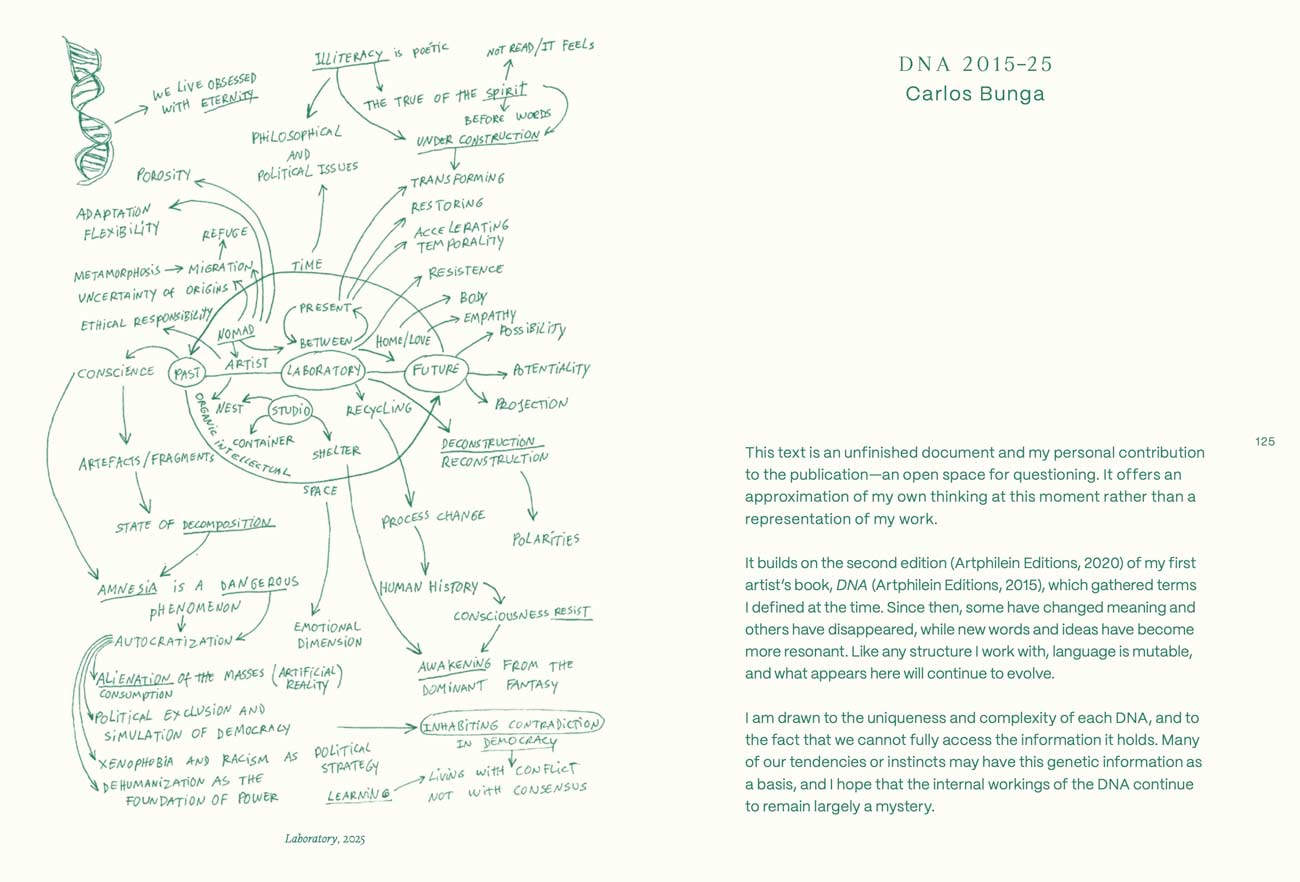 ILLITERACY is poetic
NOT READ/IT FEELS
WE LIVE OBSESSED
WITH ETERNITY
THE TRUE OF THE SPIRIT
BEFORE WORDS
UNDER CONSTRUCTION
PHILOSOPHICAL
AND
POLITICAL ISSUES
POROSITY
TRANSFORMING
ADAPTATION
FLEXIBILITY
RESTORING
REFUGE
ACCELERATING
TEMPORALITY
METAMORPHOSIS
MIGRATION
TIME
RESISTENCE
UNCERTAINTY of ORIGINS
BODY
PRESENT
EMPATHY
ETHICAL RESPONSIBILITY
NOMAD
BETWEEN
HOME/LOVE
POSSIBILITY
CONSCIENCE
PAST
ARTIST
LABORATORY
FUTURE
POTENTIALITY
NEST
STUDIO
RECYCLING
PROJECTION
ORGANIC INTELLECTUAL
CONTAINER
SHELTER
DECONSTRUCTION
RECONSTRUCTION
ARTEFACTS/FRAGMENTS
SPACE
STATE OF DECOMPOSITION
PROCESS CHANGE
POLARITIES
AMNESIA is A DANGEROUS
PHENOMENON
HUMAN HISTORY
CONSCIOUSNESS RESIST
AUTOCRATIZATION
EMOTIONAL
DIMENSION
ALIENATION of the MASSES (ARTIFICIAL
REALITY)
CONSUMPTION
AWAKENING FROM THE
DOMINANT FANTASY
POLITICAL EXCLUSION AND
SIMULATION OF DEMOCRACY
INHABITING CONTRADICTION
IN DEMOCRACY
XENOPHOBIA AND RACISM AS POLITICAL
STRATEGY
DEHUMANIZATION AS THE
FOUNDATION OF POWER
LEARNING
LIVING WITH CONFLICT
NOT WITH CONSENSUS
Laboratory, 2025
DNA 2015–25
Carlos Bunga
125
This text is an unfinished document and my personal contribution
to the publication—an open space for questioning. It offers an
approximation of my own thinking at this moment rather than a
representation of my work.
It builds on the second edition (Artphilein Editions, 2020) of my first
artist's book, DNA (Artphilein Editions, 2015), which gathered terms
I defined at the time. Since then, some have changed meaning and
others have disappeared, while new words and ideas have become
more resonant. Like any structure I work with, language is mutable,
and what appears here will continue to evolve.
I am drawn to the uniqueness and complexity of each DNA, and to
the fact that we cannot fully access the information it holds. Many
of our tendencies or instincts may have this genetic information as
a basis, and I hope that the internal workings of the DNA continue
to remain largely a mystery.